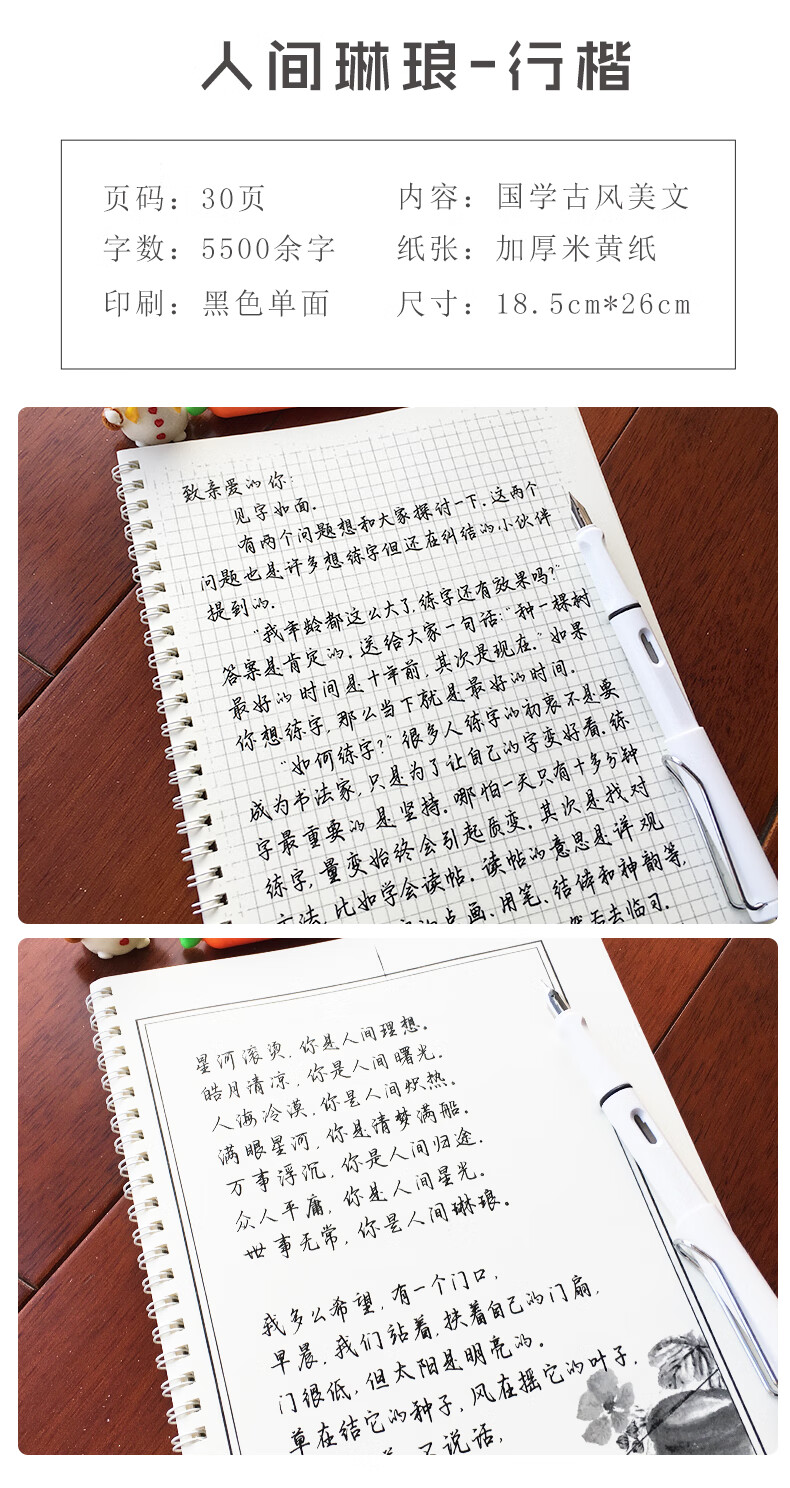 人间琳琅-行楷
页码：30页
内容：国学古风美文
字数：5500余字
纸张：加厚米黄纸
印刷：黑色单面
尺寸：18.5cm*26cm
致亲爱的你：
见字如面．
有两个问题想和大家探讨一下．这两个
问题也是许多想练字但还在纠结的小伙伴
提到的．
“我年龄都这么大了，练字还有效果吗？”
答案是肯定的．送给大家一句话：“种一棵树
最好的时间是十年前，其次是现在．”如果
你想练字，那么当下就是最好的时间．
“如何练字？”很多人练字的初衷不是要
成为书法家，只是为了让自己的字变好看．练
字最重要的是坚持．哪怕一天只有十多分钟
练字，量变始终会引起质变．其次是找对
方法，比如学会读帖．读帖的意思是详观
点画、用笔、结体和神韵等，
然后去临习．
星河滚烫，你是人间理想。
皓月清凉，你是人间曙光。
人海冷漠，你是人间炽热。
满眼星河，你是清梦满船。
万事浮沉，你是人间归途．
众人平庸，你是人间星光。
世事无常，你是人间琳琅。
我多么希望，有一个门口，
早晨，我们站着，扶着自己的门扇，
门很低，但太阳是明亮的。
草在结它的种子，风在摇它的叶子，
说话，